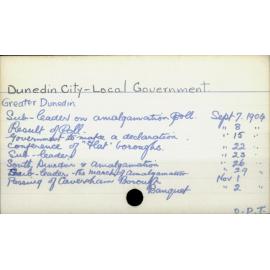 Dunedin City-Local Government.
Greater Dunedin
Sub-leader on amalgamation Poll. Sept 7. 1904
Result of Poll. " 8 "
Government to make a declaration. " 15 "
Conference of "Flat" boroughs. " 22 "
Sub-leader " 23 "
South Dunedin & Amalgamation " 26 "
Sub-leader - the march of Amalgamation " 29 "
Passing of Caversham Borough Nov 1
Banquet " 2 "
O.D.T.